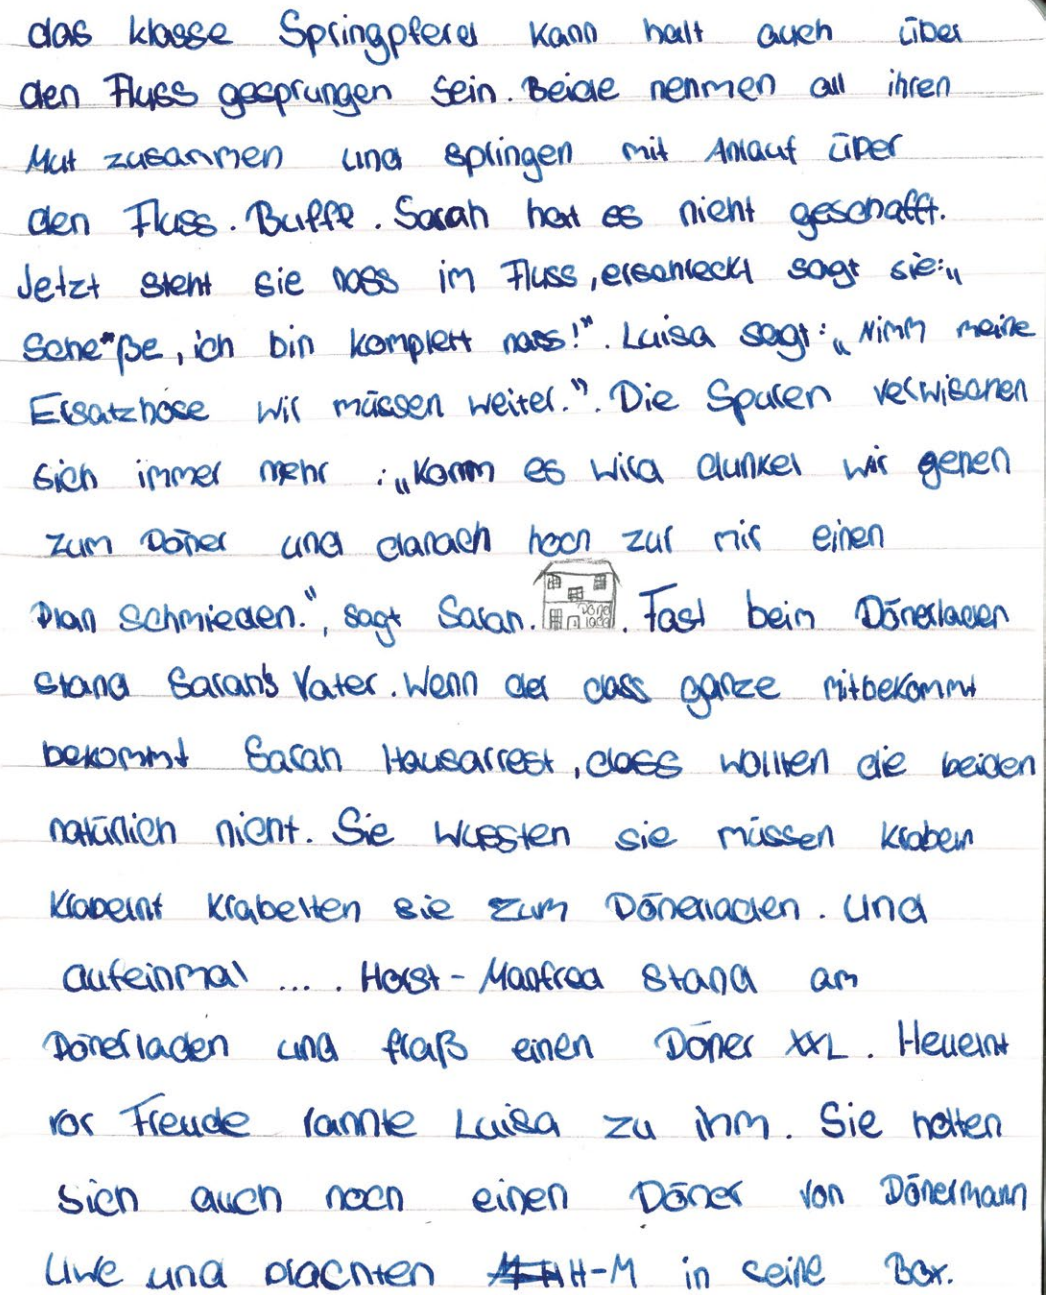 das klasse Springpferd kann halt auch über
den Fluss gesprungen sein. Beide nehmen all ihren
Mut zusammen und springen mit Anlauf über
den Fluss. Buffe. Sarah hat es nicht geschafft.
Jetzt steht sie nass im Fluss, erschreckt sagt sie:„
Sche*ße, ich bin komplett nass!". Luisa sagt: „Nimm meine
Ersatzhose wir müssen weiter.". Die Spuren verwischen
sich immer mehr :„Komm es wird dunkel wir gehen
zum Döner und danach hoch zur mir einen
Plan schmieden.", sagt Sarah. Döner laden. Fast beim Dönerladen
stand Sarah's Vater. Wenn der dass ganze mitbekommt
bekommt Sarah Hausarrest, dass wollten die beiden
natürlich nicht. Sie wussten sie müssen krabeln
Krabelnt krabelten sie zum Dönerladen. Und
aufeinmal .... Horst-Manfred stand am
Dönerladen und fraß einen Döner XXL. Heuelnt
vor Freude rannte Luisa zu ihm. Sie holten
sich auch noch einen Döner von Dönermann
Uwe und brachten H-M in seine Box.